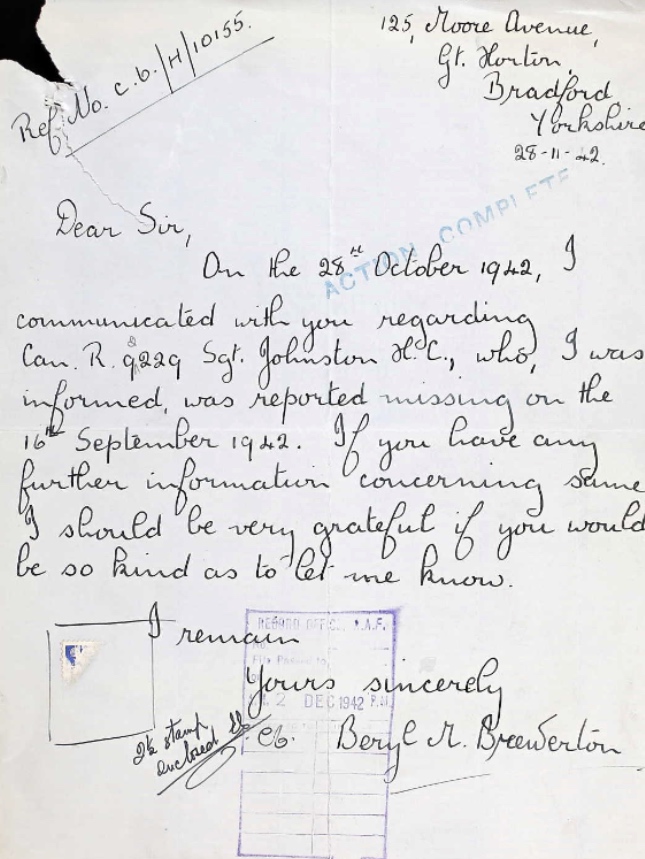 125, Moore Avenue,
Gt. Horton,
Bradford
Yorkshire
28-11-42.
Ref No. C.b./H/10155.
ACTION COMPLETE
Dear Sir,
On the 28th October 1942, I
communicated with you regarding
Can. R. 9229 Sgt. Johnston H.C., who, I was
informed, was reported missing on the
16th September 1942. If you have any
further information concerning same
I should be very grateful if you would
be so kind as to let me know.
I remain
RECORD OFFICE, R.A.F.
Yours sincerely
2 DEC 1942 P.M.
Beryl M. Brewerton
2½ stamp
enclosed